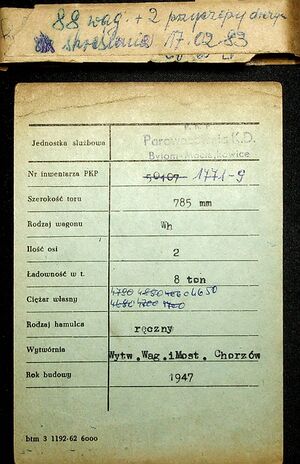 88 wag. + 2 przyczepy
skreślenia 17.02.83
P.K.P.
Jednostka służbowa Parowozownia K.D.
Bytom-Maciejkowice
Nr inwentarza PKP 50107 1771-9
Szerokość toru 785 mm
Rodzaj wagonu Wh
Ilość osi 2
Ładowność w t. 8 ton
4780 4850 4650
Ciężar własny 4680 4700
Rodzaj hamulca ręczny
Wytwórnia Wytw.Wag.iMost. Chorzów
Rok budowy 1947
btm 3 1192-62 6000